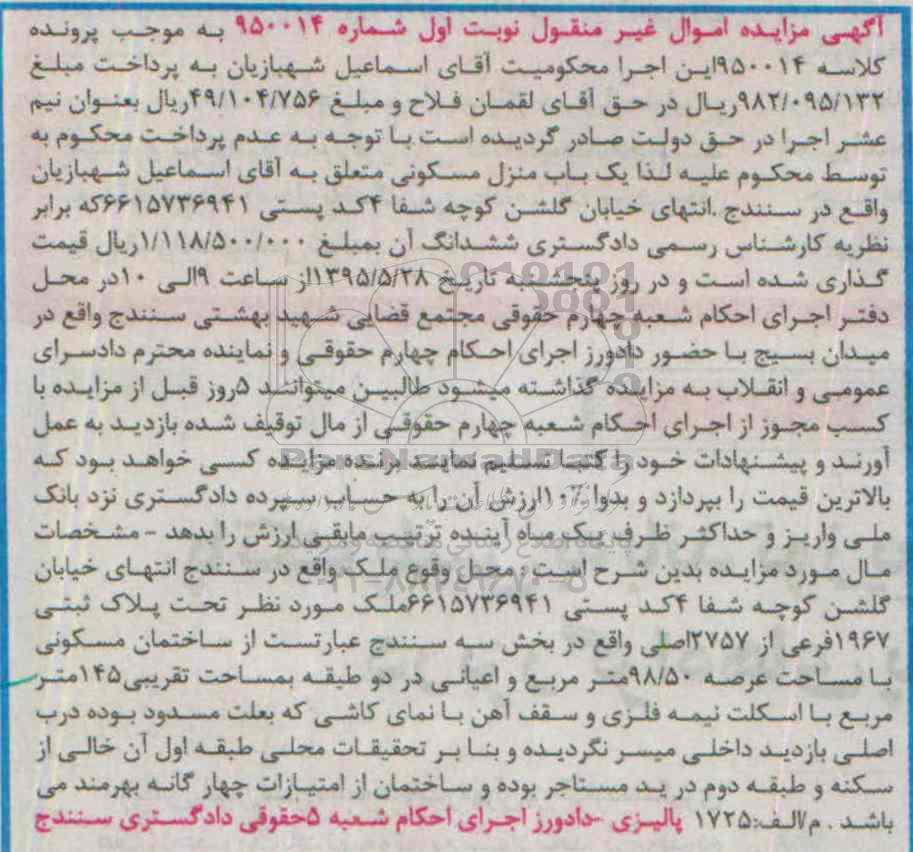 آگهی مزایده اموال غیر منقول نوبت اول شماره ۹۵۰۰۱۴ به موجب پرونده
کلاسه ۹۵۰۰۱۴این اجرا محکومیت آقای اسماعیل شهبازیان به پرداخت مبلغ
۹۸۲/۰۹۵/۱۳۲ریال در حق آقای لقمان فلاح و مبلغ ۴۹/۱۰۴/۷۵۶ریال بعنوان نیم
عشر اجرا در حق دولت صادر گردیده است با توجه به عدم پرداخت محکوم به
توسط محکوم علیه لذا یک باب منزل مسکونی متعلق به آقای اسماعیل شهبازیان
واقع در سنندج .انتهای خیابان گلشن کوچه شفا ۴کد پستی ۶۶۱۵۷۳۶۹۴۱که برابر
نظریه کارشناس رسمی دادگستری ششدانگ آن بمبلغ ۱/۱۱۸/۵۰۰/۰۰۰ریال قیمت
گذاری شده است و در روز پنجشنبه تاریخ ۱۳۹۵/۵/۲۸از ساعت ۹الی ۱۰در محل
دفتر اجرای احکام شعبه چهارم حقوقی مجتمع قضایی شهید بهشتی سنندج واقع در
میدان بسیج با حضور دادورز اجرای احکام چهارم حقوقی و نماینده محترم دادسرای
عمومی و انقلاب به مزایده گذاشته میشود طالبین میتوانند ۵روز قبل از مزایده با
کسب مجوز از اجرای احکام شعبه چهارم حقوقی از مال توقیف شده بازدید به عمل
آورند و پیشنهادات خود را کتبا تسلیم نمایند برنده مزایده کسی خواهد بود که
بالاترین قیمت را بپردازد و بدوا ۱۰٪ارزش آن را به حساب سپرده دادگستری نزد بانک
ملی واریز و حداکثر ظرف یک ماه آینده ترتیب مابقی ارزش را بدهد - مشخصات
مال مورد مزایده بدین شرح است : محل وقوع ملک واقع در سنندج انتهای خیابان
گلشن کوچه شفا ۴کد پستی ۶۶۱۵۷۳۶۹۴۱ملک مورد نظر تحت پلاک ثبتی
۱۹۶۷فرعی از ۲۷۵۷اصلی واقع در بخش سه سنندج عبارتست از ساختمان مسکونی
با مساحت عرصه ۹۸/۵۰متر مربع و اعیانی در دو طبقه بمساحت تقریبی۱۴۵متر
مربع با اسکلت نیمه فلزی و سقف آهن با نمای کاشی که بعلت مسدود بوده درب
اصلی بازدید داخلی میسر نگردیده و بنا بر تحقیقات محلی طبقه اول آن خالی از
سکنه و طبقه دوم در ید مستاجر بوده و ساختمان از امتیازات چهار گانه بهرمند می
باشد . م/الف:۱۷۲۵ پالیزی -دادورز اجرای احکام شعبه ۵حقوقی دادگستری سنندج
ParsNamadData